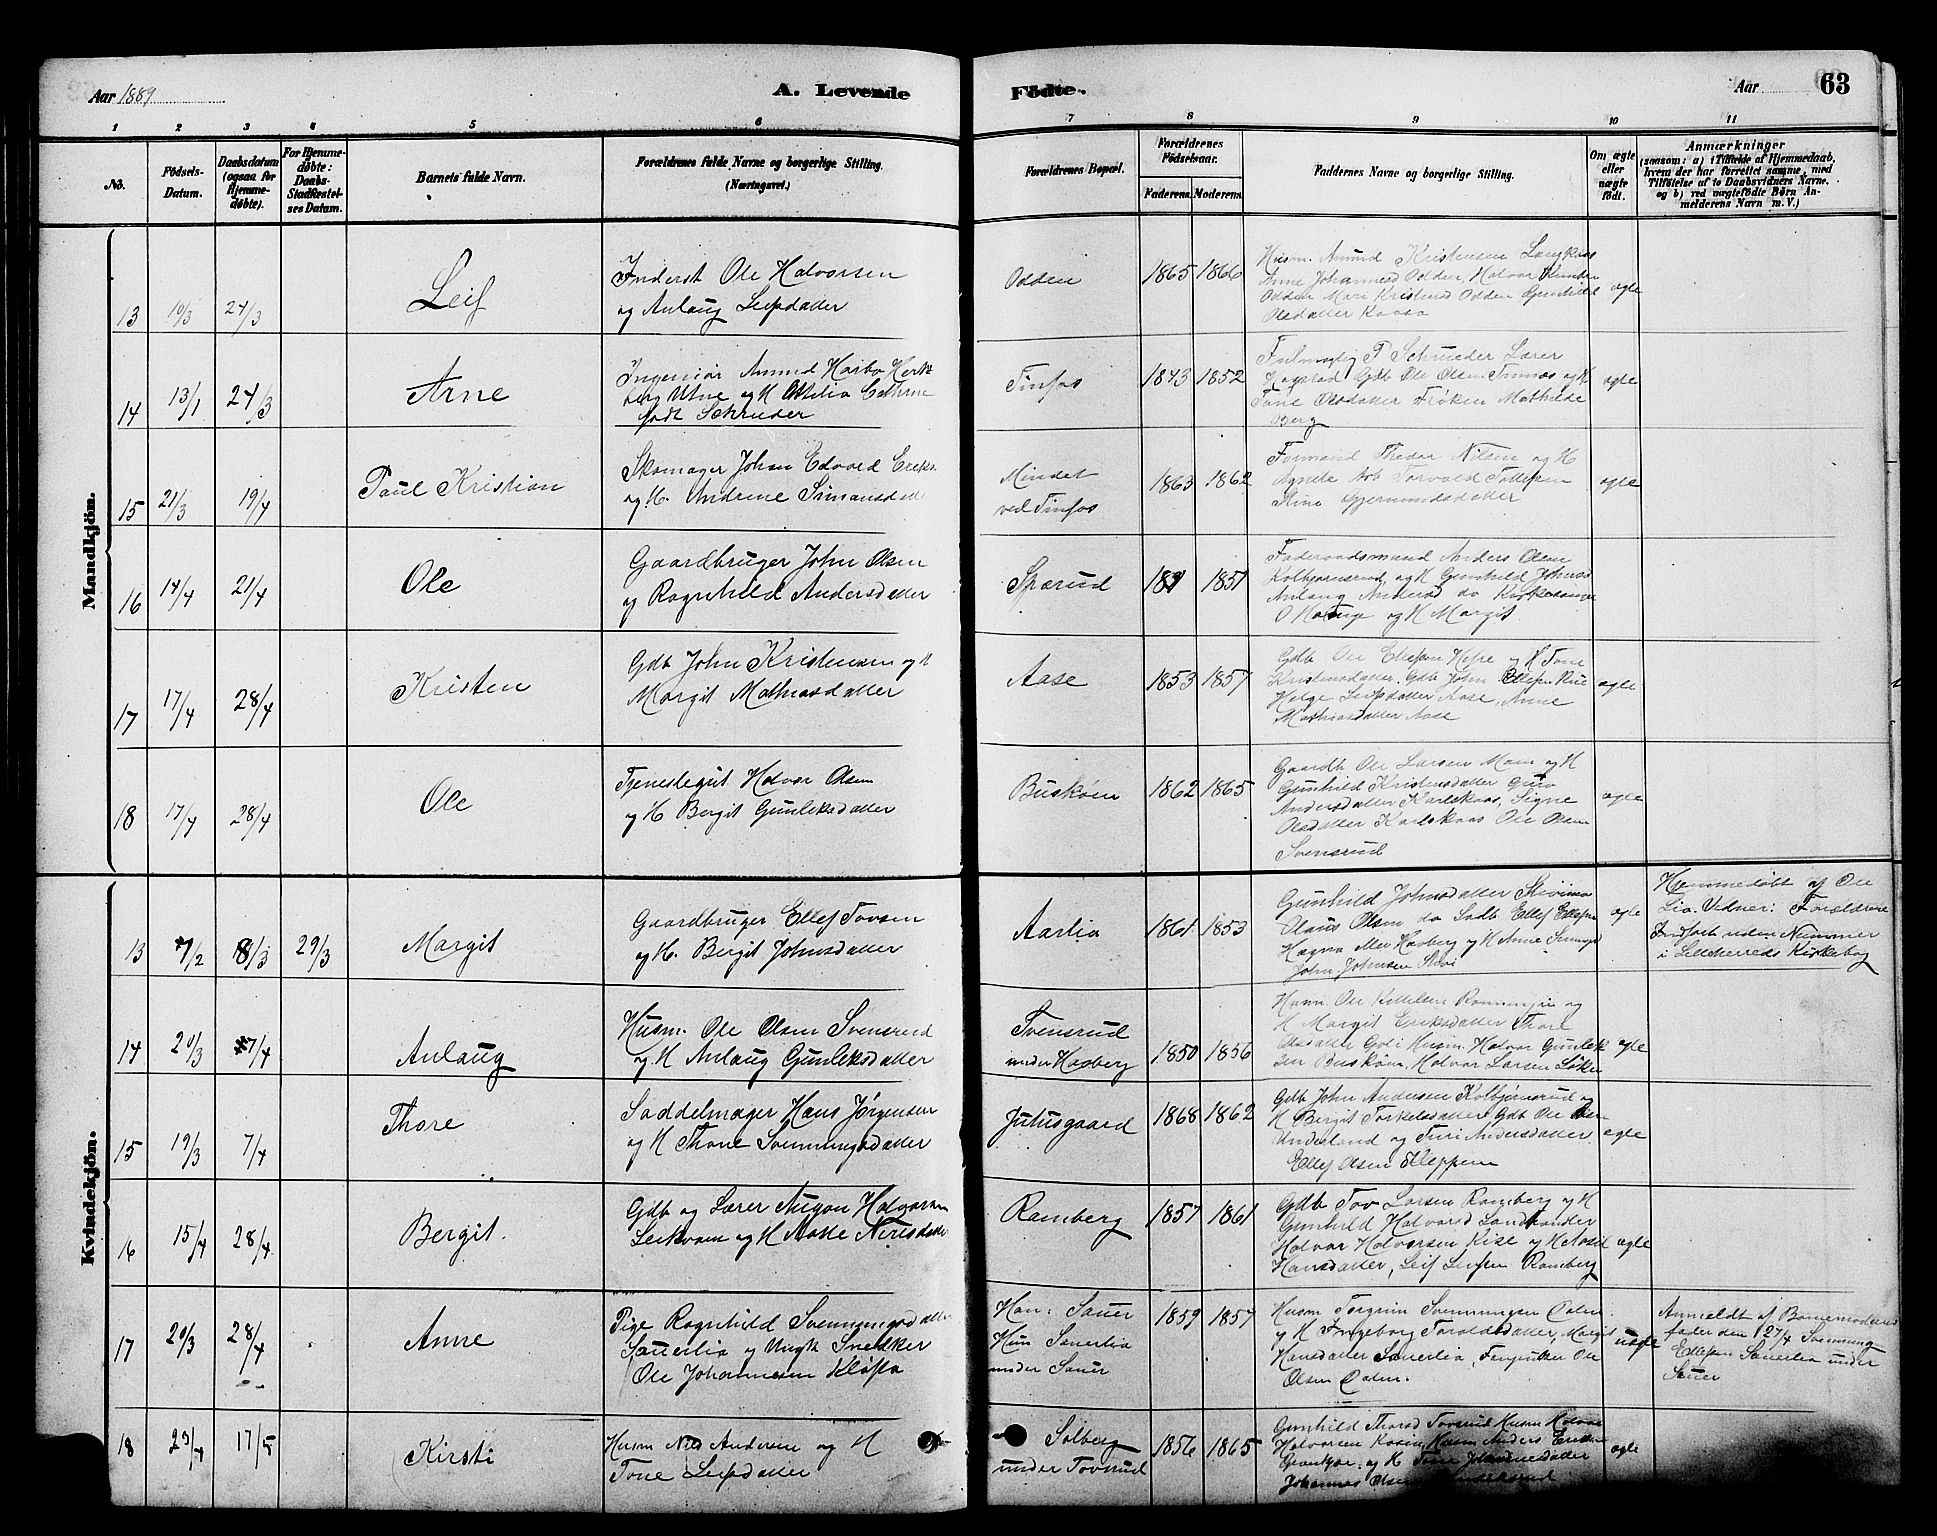 Aar 1889
A. Levende
Fødte.
Aar
63
1 2 3 4 5 6 7 8 9 10 11
No.
Fødsels-
Datum.
Daabsdatum
(ogsaa for
Hjemme-
døbte).
For Hjemme-
døbte:
Daabs-
Stadfæstel-
ses Datum.
Barnets fulde Navn.
Forældrenes fulde Navne og borgerlige Stilling.
(Næringsvei.)
Forældrenes Bopæl.
Forældrenes
Fødselsaar.
Faderens. Moderens.
Faddernes Navne og borgerlige Stilling.
Om ægte
eller
uægte
født.
Anmærkninger
(saasom: a) i Tilfælde af Hjemmedaab,
hvem der har forrettet samme, med
Tilføielse af to Daabsvidners Navne.
og b) ved uægtefødte Børn An-
melderens Navn m. V.)
Mandkjön.
13 10/3 24/3 Leif
Inderst Ole Halvorsen
og Anlaug Leifsdatter
Odden 1865 1866
Husm. Amund Kristensen Langkaas
Anne Johannesd Odden, Halvor
Odden Mari Kristensd Odden Gunhild
Olsdatter Kaasa
ægte
14 13/1 24/3 Arne
Ingeniør Amund Harbo
Utne og H Ottilia Cathrine
født Schrueder
Tinfos 1843 1852
Fulmægtig P Schrueder Lærer
Hagstad Gdb Ole Olsen Tinnæs og H
Tone Olsdatter Frøken Mathilde
Berg
ægte
15 21/3 19/4 Paul Kristian
Skomager Johan Edvard
og H. Andrine Simonsdatte
Mindet
ved Tinfos
1863 1862
Formand Thedor Nilsen og H
Agnete Arb Torvald Tollefsen
Stine Gjermundsdatter
ægte
16 14/4 21/4 Ole
Gaardbruger John Olsen
og Ragnhild Andersdatter
Sparud 1857
Føderaadsmand Anders Olsen
Kolbjørnsrud, og H Gunhild Johnsd
Anlaug Andersd do Kirkesanger
O Hauge og H Margit
17 17/4 28/4 Kristen
Gdb John Kristensen og H
Margit Mathiasdatter
Aase 1853 1857
Gdb Ole Ellefsen Hefre og H Tone
Kristensdatter. Gdb John Ellefsen Rue
Helge Leifsdatter Aase, Anne
Mathiasdatter Aase
ægte
18 17/4 28/4 Ole
Tjenestegut Halvor Olsen
og H Bergit Gunleksdatter
Buskøen 1862 1865
Gaardb Ole Larsen Moen og H
Gunhild Kristensdatter Guro
Andersdatter Karlskaas, Signe
Olsdatter Karlskaas Ole Olsen
Svensrud
ægte
Kvindekjön.
13 7/2 8/3 29/3 Margit
Gaardbruger Ellef Tovsen
og H. Bergit Johnsdatter
Aarlia 1861 1853
Gunhild Johnsdatter Skivima
Olaus Olsen do Gdb Ellef Ellefsen
Hægna Haaberg og H Anne
John Johnsen Skivi
ægte
Hjemmedøbt af Ole
Lia. Vidner: Forældrene
Indført uden Nummer
i Lilleherreds Kirkebog
14 20/3 7/4 Anlaug
Husm. Ole Olsen Svensrud
og H Anlaug Gunleksdatter
Svensrud
under Haaberg
1850 1856
Husm. Ole Kittelsen Rønningen og
H Margit Eriksdatter Thore
Olsdatter Husm. Halvor Gunlek
sen Buskøen, Halvor Larsen
ægte
15 19/3 7/4 Thore
Saddelmager Hans Jørgensen
og H Thone Svenningsdatter
Juvsgaard 1868 1862
Gdb John Andersen Kolbjørnsrud og
H Bergit Torkelsdatter Gdb Ole Olsen
Underland og Turi Andersdatter
Ellef Olsen Kleppen
ægte
16 15/4 28/4 Bergit.
Gdb og Lærer Augon Halvorsen
Leikvam og H Aase
Ramberg 1857 1861
Gdb Tov Larsen Ramberg og H
Gunhild Halvorsd Landsander
Halvor Halvorsen Kise og H Aasil
Hansdatter, Leif Leifsen Ramberg
ægte
17 20/3 28/4 Anne
Pige Ragnhild Svenningsdatter
Sauerlia og Ungk Snekker
Ole Johannesen Kløfta
Han: Sauer
Hun Sauerlia
under Sauer
1859 1857
Husm Torgrim Svenningsen Dalen.
og H Ingeborg Taraldsdatter, Margit
Hansdatter Sauerlia, Ole
Olsen Dalen.
uægte
Anmeldt af Barnemoderens
fader den 27/4 Svenning
Ellefsen Sauerlia under
Sauer
18 23/4 17/5 Kirsti
Husm Nils Andersen og H
Tone Leifsdatter
Solberg
under Tovsrud
1856 1865
Gunhild Thorsd Tovsrud Husm Halvor
Halvorsen Husm Anders
og H Tone Johannesdatter
Johannes Olsen
ægte